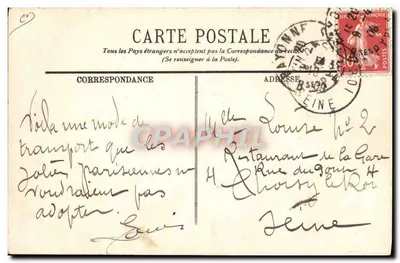 CARTE POSTALE
Tous les Pays étrangers n'acceptent pas la Correspondance au recto
(Se renseigner à la Poste).
CORRESPONDANCE
ADRESSE
Voilà une mode de
transport que les
jolies parisiennes ne
voudraient pas
adopter.
Louis
Mlle Louise No 2
Restaurant de la Gare
4 Rue du Pont 4
Choisy le Roi
Seine
BAYONNE
SEINE
CPARAMA